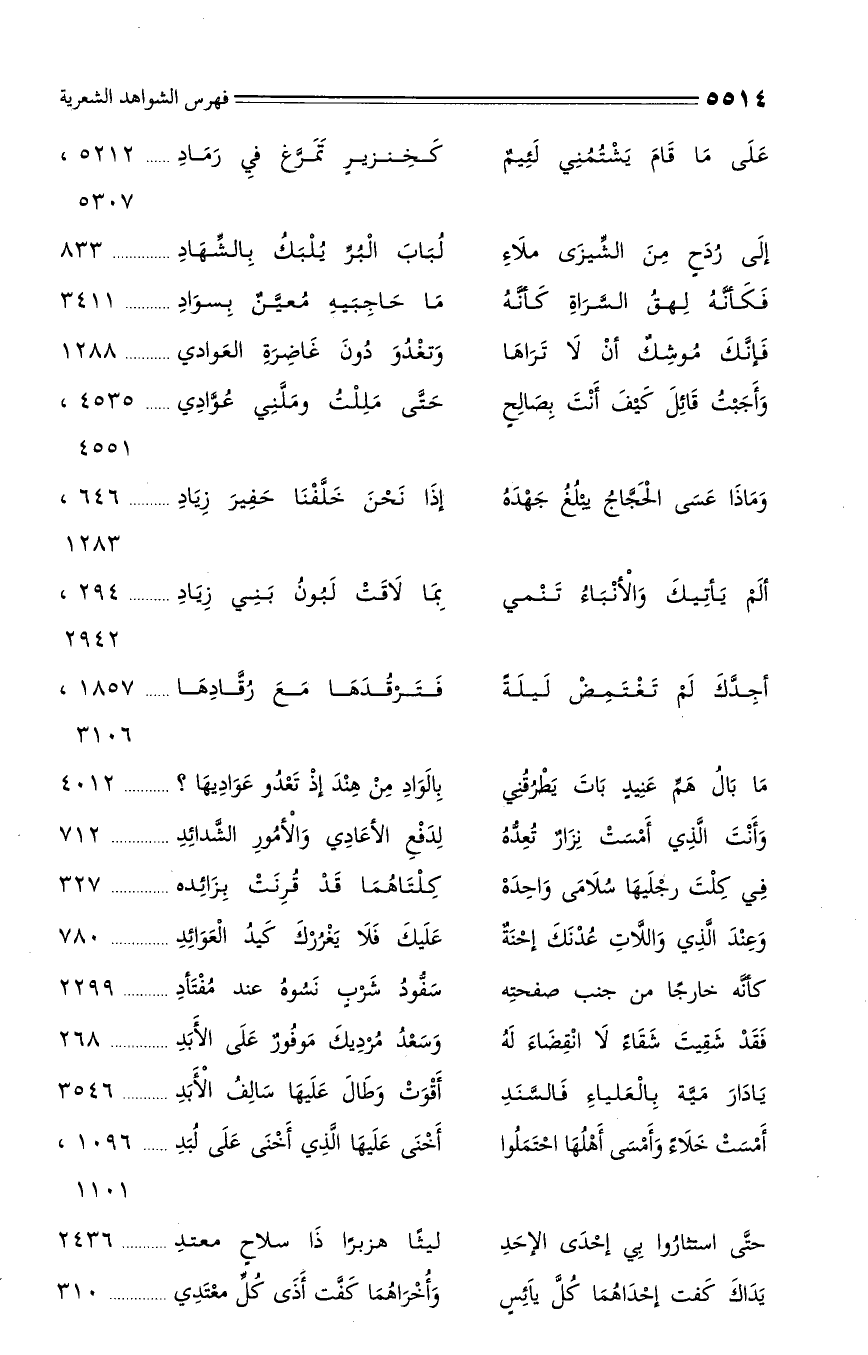 ٥٥١٤ فهرس الشواهد الشعرية
عَلَى مَا قَامَ يَشْتُمُنِي لَئِيمٌ كَخِنزيرٍ تَمَرَّغَ فِي رَمَادِ ...... ٥٢١٢ ،
٥٣٠٧
إلَى رُدَحٍ مِنَ الشِّيزَى ملَاءِ لُبَابَ الْبُرِّ يُلْبَكُ بِالشِّهَادِ ............. ٨٣٣
فَكَأنَّهُ لِهقُ السَّرَاةِ كَأنَّهُ مَا حَاجِبَيهِ مُعيَّنٌ بِسوَادِ ........... ٣٤١١
فَإنَّكَ مُوشِكٌ أنْ لَا تَرَاهَا وَتغْدُوَ دُونَ غَاضِرَةِ العَوادي ........... ١٢٨٨
وَأَجَبْتُ قَائِلَ كَيْفَ أَنْتَ بِصَالِحٍ حَتَّى مَلِلْتُ ومَلَّنِي عُوَّادِي ...... ٤٥٣٥ ،
٤٥٥١
وَمَاذَا عَسَى الْحَجَّاجُ يبْلُغُ جَهْدَهُ إذَا نَحْنَ خَلَّفْنَا حَفِيرَ زِيَادِ .......... ٦٤٦ ،
١٢٨٣
ألَمْ يَأتِيكَ وَالْأنْبَاءُ تَنْمي بِمَا لَاقَتْ لَبُونُ بَنِي زِيَادِ .......... ٢٩٤ ،
٢٩٤٢
أجِدَّكَ لَمْ تَغْتَمِضْ لَيلَةً فَتَرْقُدَهَا مَعَ رُقَّادِهَا ...... ١٨٥٧ ،
٣١٠٦
مَا بَالُ هَمٍّ عَنِيدٍ بَاتَ يَطْرقُنِي بِالَوَادِ مِنْ هِنْدَ إذْ تَعْدُو عَوَادِيهَا ؟ ........... ٤٠١٢
وَأَنْتَ الَّذِي أَمْسَتْ نِزَارٌ تُعِدُّهُ لِدَفْعِ الأعَادِي وَالْأمُورِ الشَّدائدِ .............. ٧١٢
فِي كِلْتَ رجْلَيهَا سُلَامَى وَاحِدَهْ كِلْتَاهُمَا قَدْ قُرِنَتْ بِزَائِده ............. ٣٢٧
وَعِنْدَ الَّذِي وَاللَّاتِ عُدْنَكَ إحْنَةٌ عَلَيكَ فَلَا يَغْرُرْكَ كَيدُ الْعَوَائِدِ ............. ٧٨٠
كأنَّه خارجًا من جنب صفحتِه سَفُّودُ شَرْبٍ نَسُوهُ عند مُفْتَأدِ ........... ٢٢٩٩
فَقَدْ شَقِيتَ شَقَاءً لَا انْقِضَاءَ لَهُ وَسَعْدُ مُرْدِيكَ مَوفُورٌ عَلَى الأَبَدِ ............. ٢٦٨
يَادَارَ مَيَّة بِالْعَلياءِ فَالسَّنَدِ أَقْوَتْ وَطَالَ عَلَيهَا سَالِفُ الْأَبَدِ ........... ٣٥٤٦
أَمْسَتْ خَلَاءً وَأَمْسَى أَهْلُهَا احْتَمَلُوا أَخْنَى عَلَيهَا الَّذِي أَخْنَى عَلَى لُبَدِ ...... ١٠٩٦ ،
١١٠١
حتَّى استثارُوا بِي إحْدَى الإحَدِ ليثًا هزبرًا ذَا سلاحٍ معتدِ ........... ٢٤٣٦
يَدَاكَ كَفت إحْدَاهُمَا كُلَّ يائِسٍ وَأُخْرَاهُمَا كَفَّت أَذَى كُلِّ معْتَدِي .............. ٣١٠